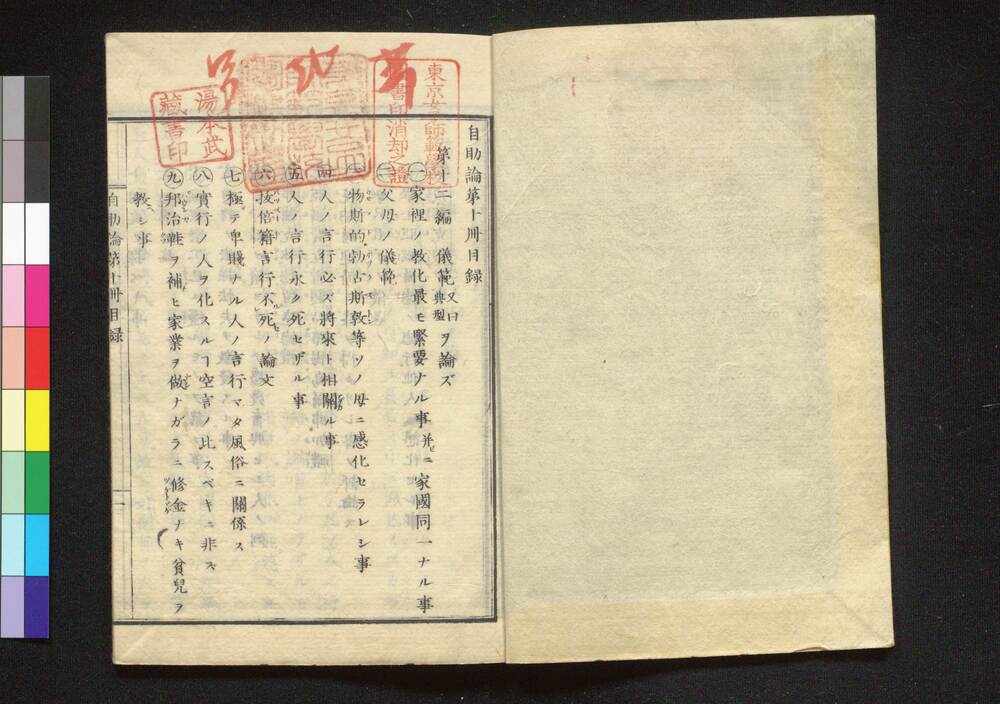 東京女子師範學校
書印消却之證
湯本武
藏書印
自助論第十冊目録
第十二編 儀範 又曰典型 ヲ論ズ
一 家裡ノ教化最モ緊要ナル事并ニ家國同一ナル事
二 父母ノ儀範
物斯的勃古斯敦等ソノ母ニ感化セラレシ事
四 人ノ言行必ズ將來ト相關ル事
五 人ノ言行永ク死セザル事
六 拔倍籍言行不死ノ論文
七 極テ卑賤ナル人ノ言行マタ風俗ニ關係ス
八 實行ノ人ヲ化スルヿ空言ノ比スベキニ非ズ
九 邦治鞋ヲ補ヒ家業ヲ做ナガラニ修金ナキ貧兒ヲ
教シ事
自助論第十冊目録
一